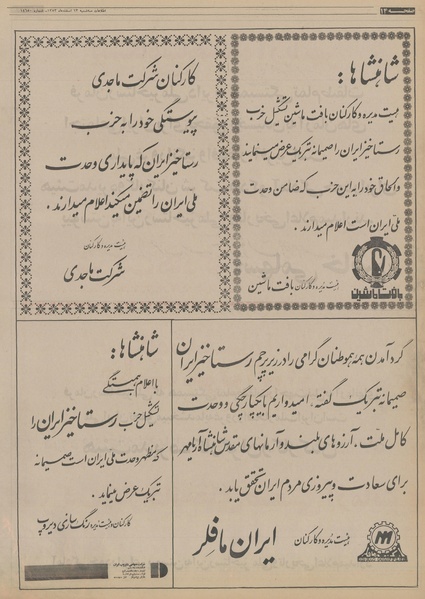 صفحه ۱۲
شاهنشاها:
هیئت مدیره و کارکنان بافت ماشین تشکیل حزب
رستاخیز ایران را صمیمانه تبریک عرض مینمایند
و الحاق خود را به این حزب که ضامن وحدت
ملی ایران است اعلام میدارند.
هیئت مدیره و کارکنان بافت ماشین
بافت ماشین
کارکنان شرکت ماجدی
پیوستگی خود را به حزب
رستاخیز ایران که پایداری وحدت
ملی ایران را تضمین میکند اعلام میدارند.
هیئت مدیره و کارکنان
شرکت ماجدی
گرد آمدن همه هموطنان گرامی را در زیر پرچم رستاخیز ایران
صمیمانه تبریک گفته، امیدواریم با یکپارچگی و وحدت
کامل ملت، آرزوهای بلند و آرمانهای مقدس شاهنشاه آریامهر
برای سعادت و پیروزی مردم ایران تحقق یابد.
هیئت مدیره و کارکنان ایران مافلر
شاهنشاها:
با اعلام همبستگی
تشکیل حزب رستاخیز ایران را
که مظهر وحدت ملی ایران است صمیمانه
تبریک عرض مینماید.
کارکنان و هیئت مدیره رنگ سازی دیروپ